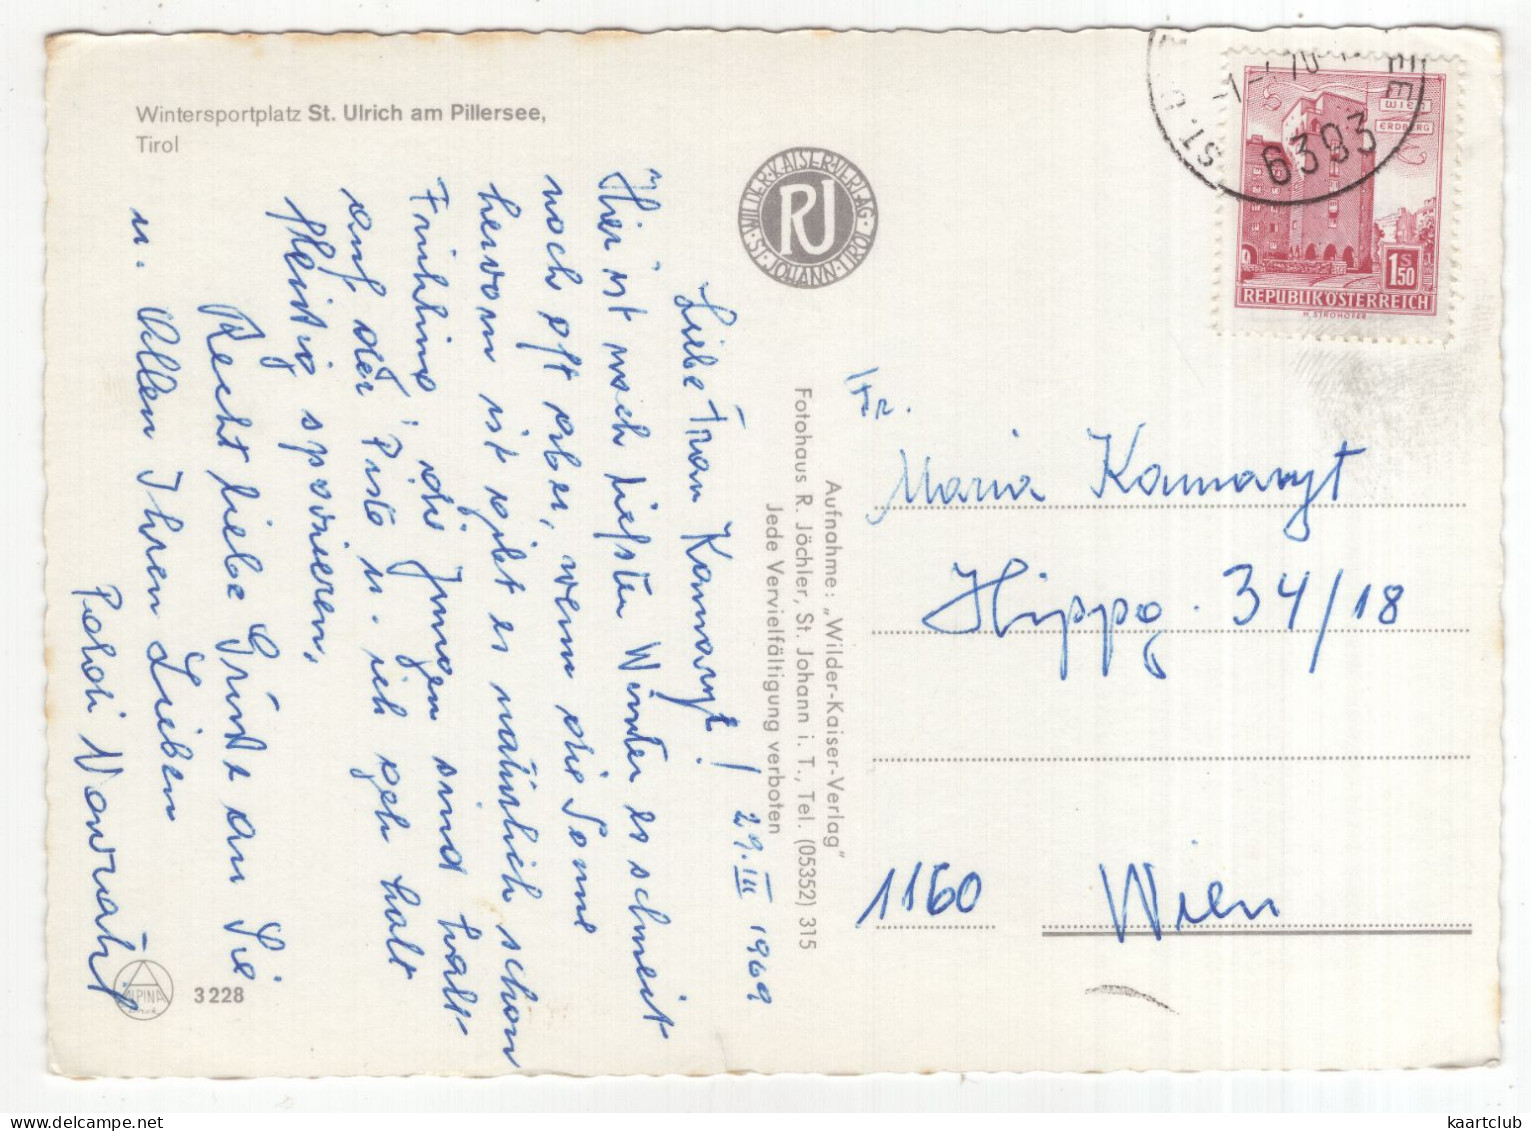 Wintersportplatz St. Ulrich am Pillersee,
Tirol
Liebe Frau Kammaryt!
29.III 1969
Hier ist noch tiefster Winter es schneit
noch oft aber, wenn die Sonne
hervorn ist gibt es natürlich schon
Frühling, die Jungen sind halt
auf der Piste u. ich geh halt
fleißig spazieren,
Recht liebe Grüße an Sie
u. Allen Ihren Lieben
Poldi Nowraty
ALPINA
3228
WILDER-KAISER-VERLAG·
RJ
ST·JOHANN·TIROL
Aufnahme: „Wilder-Kaiser-Verlag"
Fotohaus R. Jöchler, St. Johann i. T., Tel. (05352) 315
Jede Vervielfältigung verboten
ST. U
6393
WIEN
ERDBERG
1S50
REPUBLIK ÖSTERREICH
H. STROHOFER
Fr.
Maria Kammaryt
Hippg. 34/18
1160 Wien
kaartclub